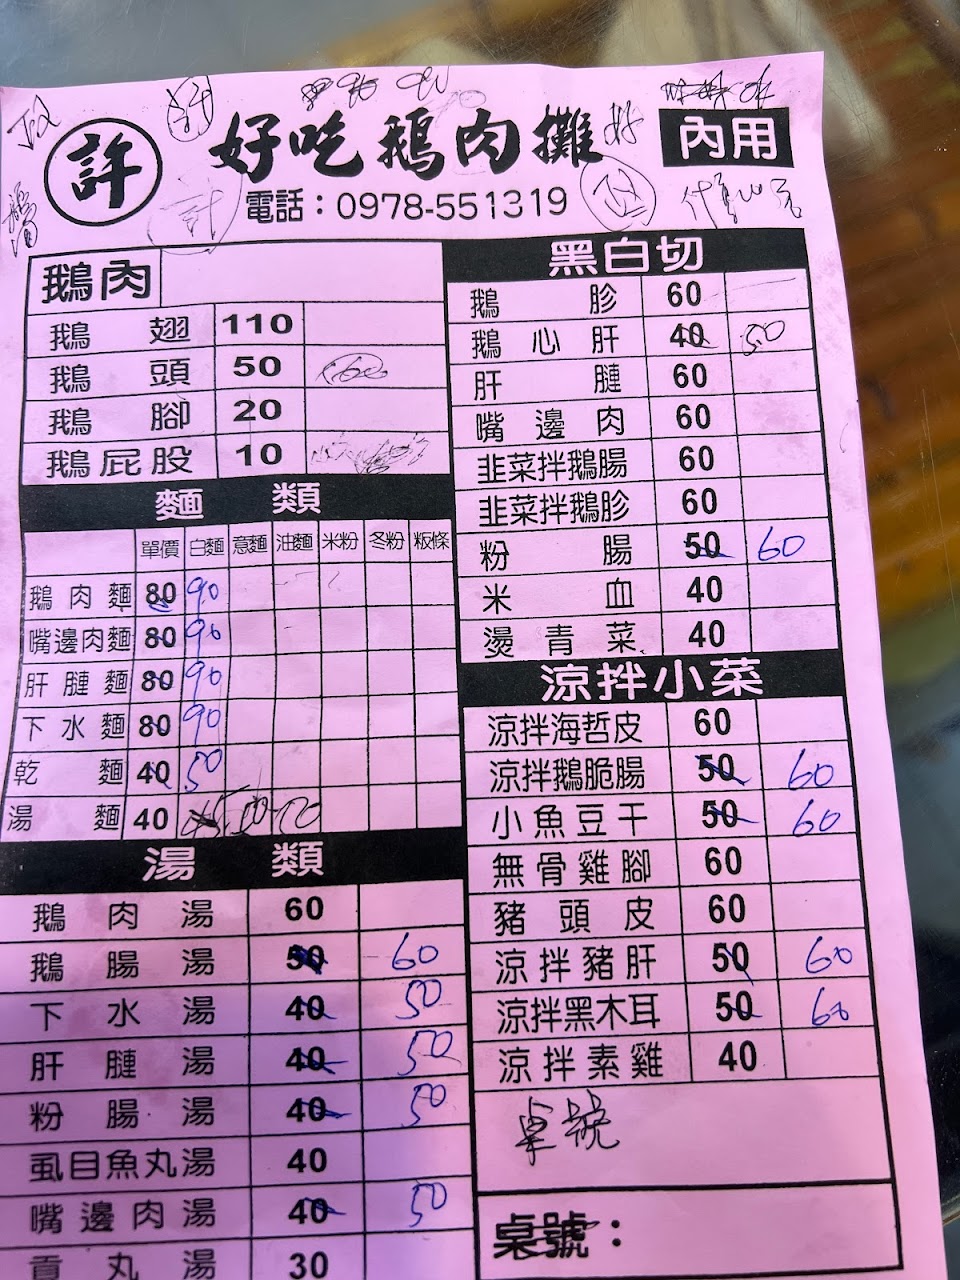 許 好吃鵝肉攤 好 內用
電話：0978-551319
鵝肉
鵝翅 110
鵝頭 50 60
鵝腳 20
鵝屁股 10
麵類
單價 白麵 意麵 油麵 米粉 冬粉 粄條
鵝肉麵 80 90
嘴邊肉麵 80 90
肝腱麵 80 90
下水麵 80 90
乾麵 40 50
湯麵 40
湯類
鵝肉湯 60
鵝腸湯 50 60
下水湯 40 50
肝腱湯 40 50
粉腸湯 40 50
虱目魚丸湯 40
嘴邊肉湯 40 50
貢丸湯 30
黑白切
鵝胗 60
鵝心肝 40 50
肝腱 60
嘴邊肉 60
韭菜拌鵝腸 60
韭菜拌鵝胗 60
粉腸 50 60
米血 40
燙青菜 40
涼拌小菜
涼拌海哲皮 60
涼拌鵝脆腸 50 60
小魚豆干 50 60
無骨雞腳 60
豬頭皮 60
涼拌豬肝 50 60
涼拌黑木耳 50 60
涼拌素雞 40
桌號
桌號：